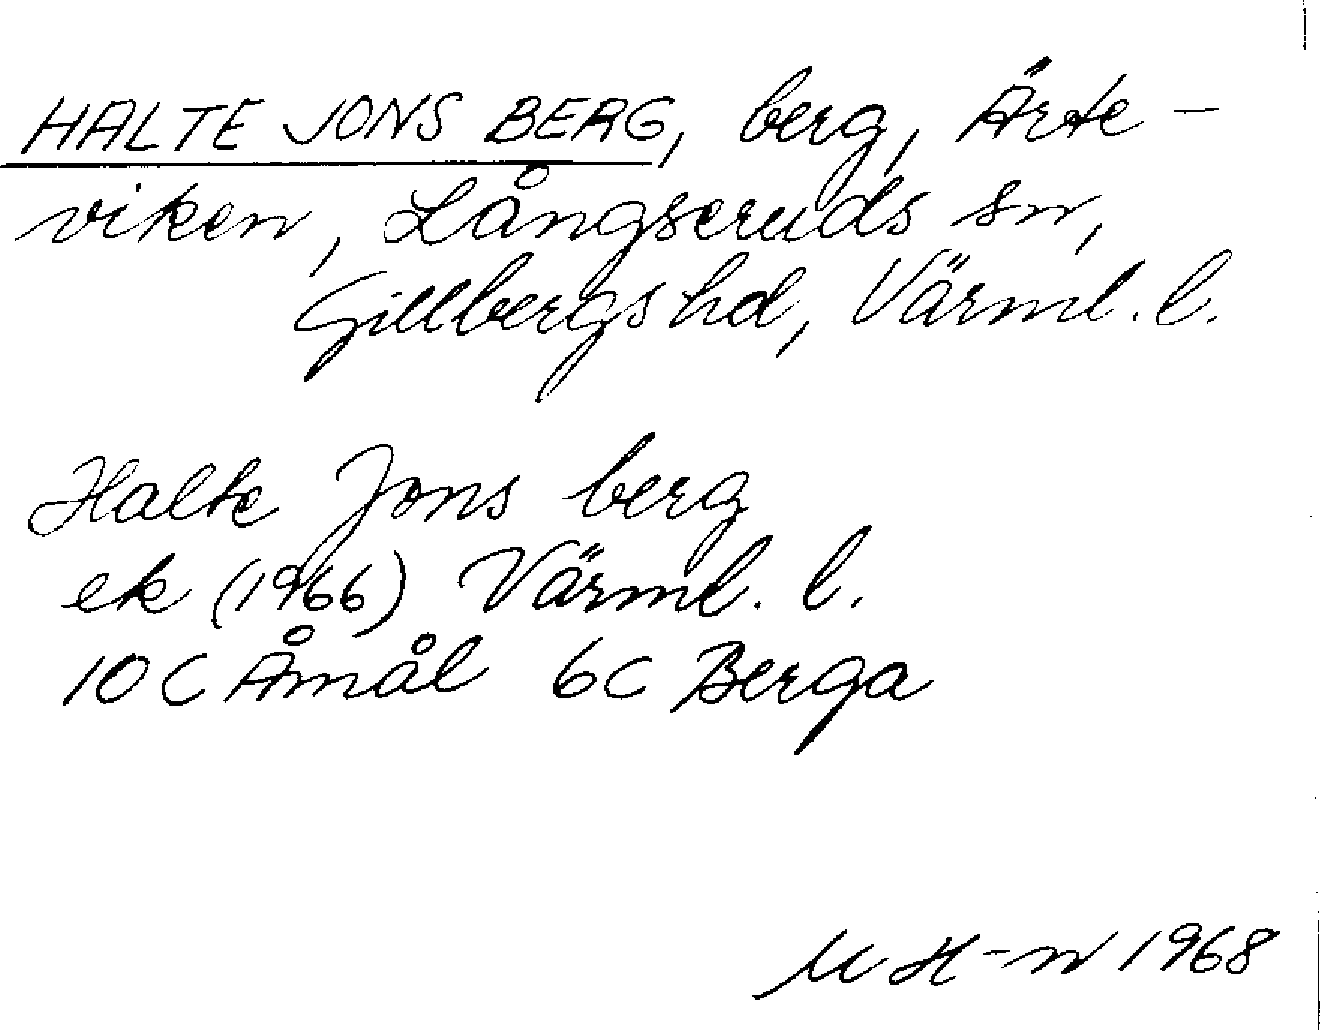 HALTE JONS BERG, berg, Ärte-
viken, Långseruds sn,
Gillbergs hd, Värml. l.
Halte Jons berg
ek (1966) Värml. l.
10 C Åmål 6c Berga
M H-n 1968